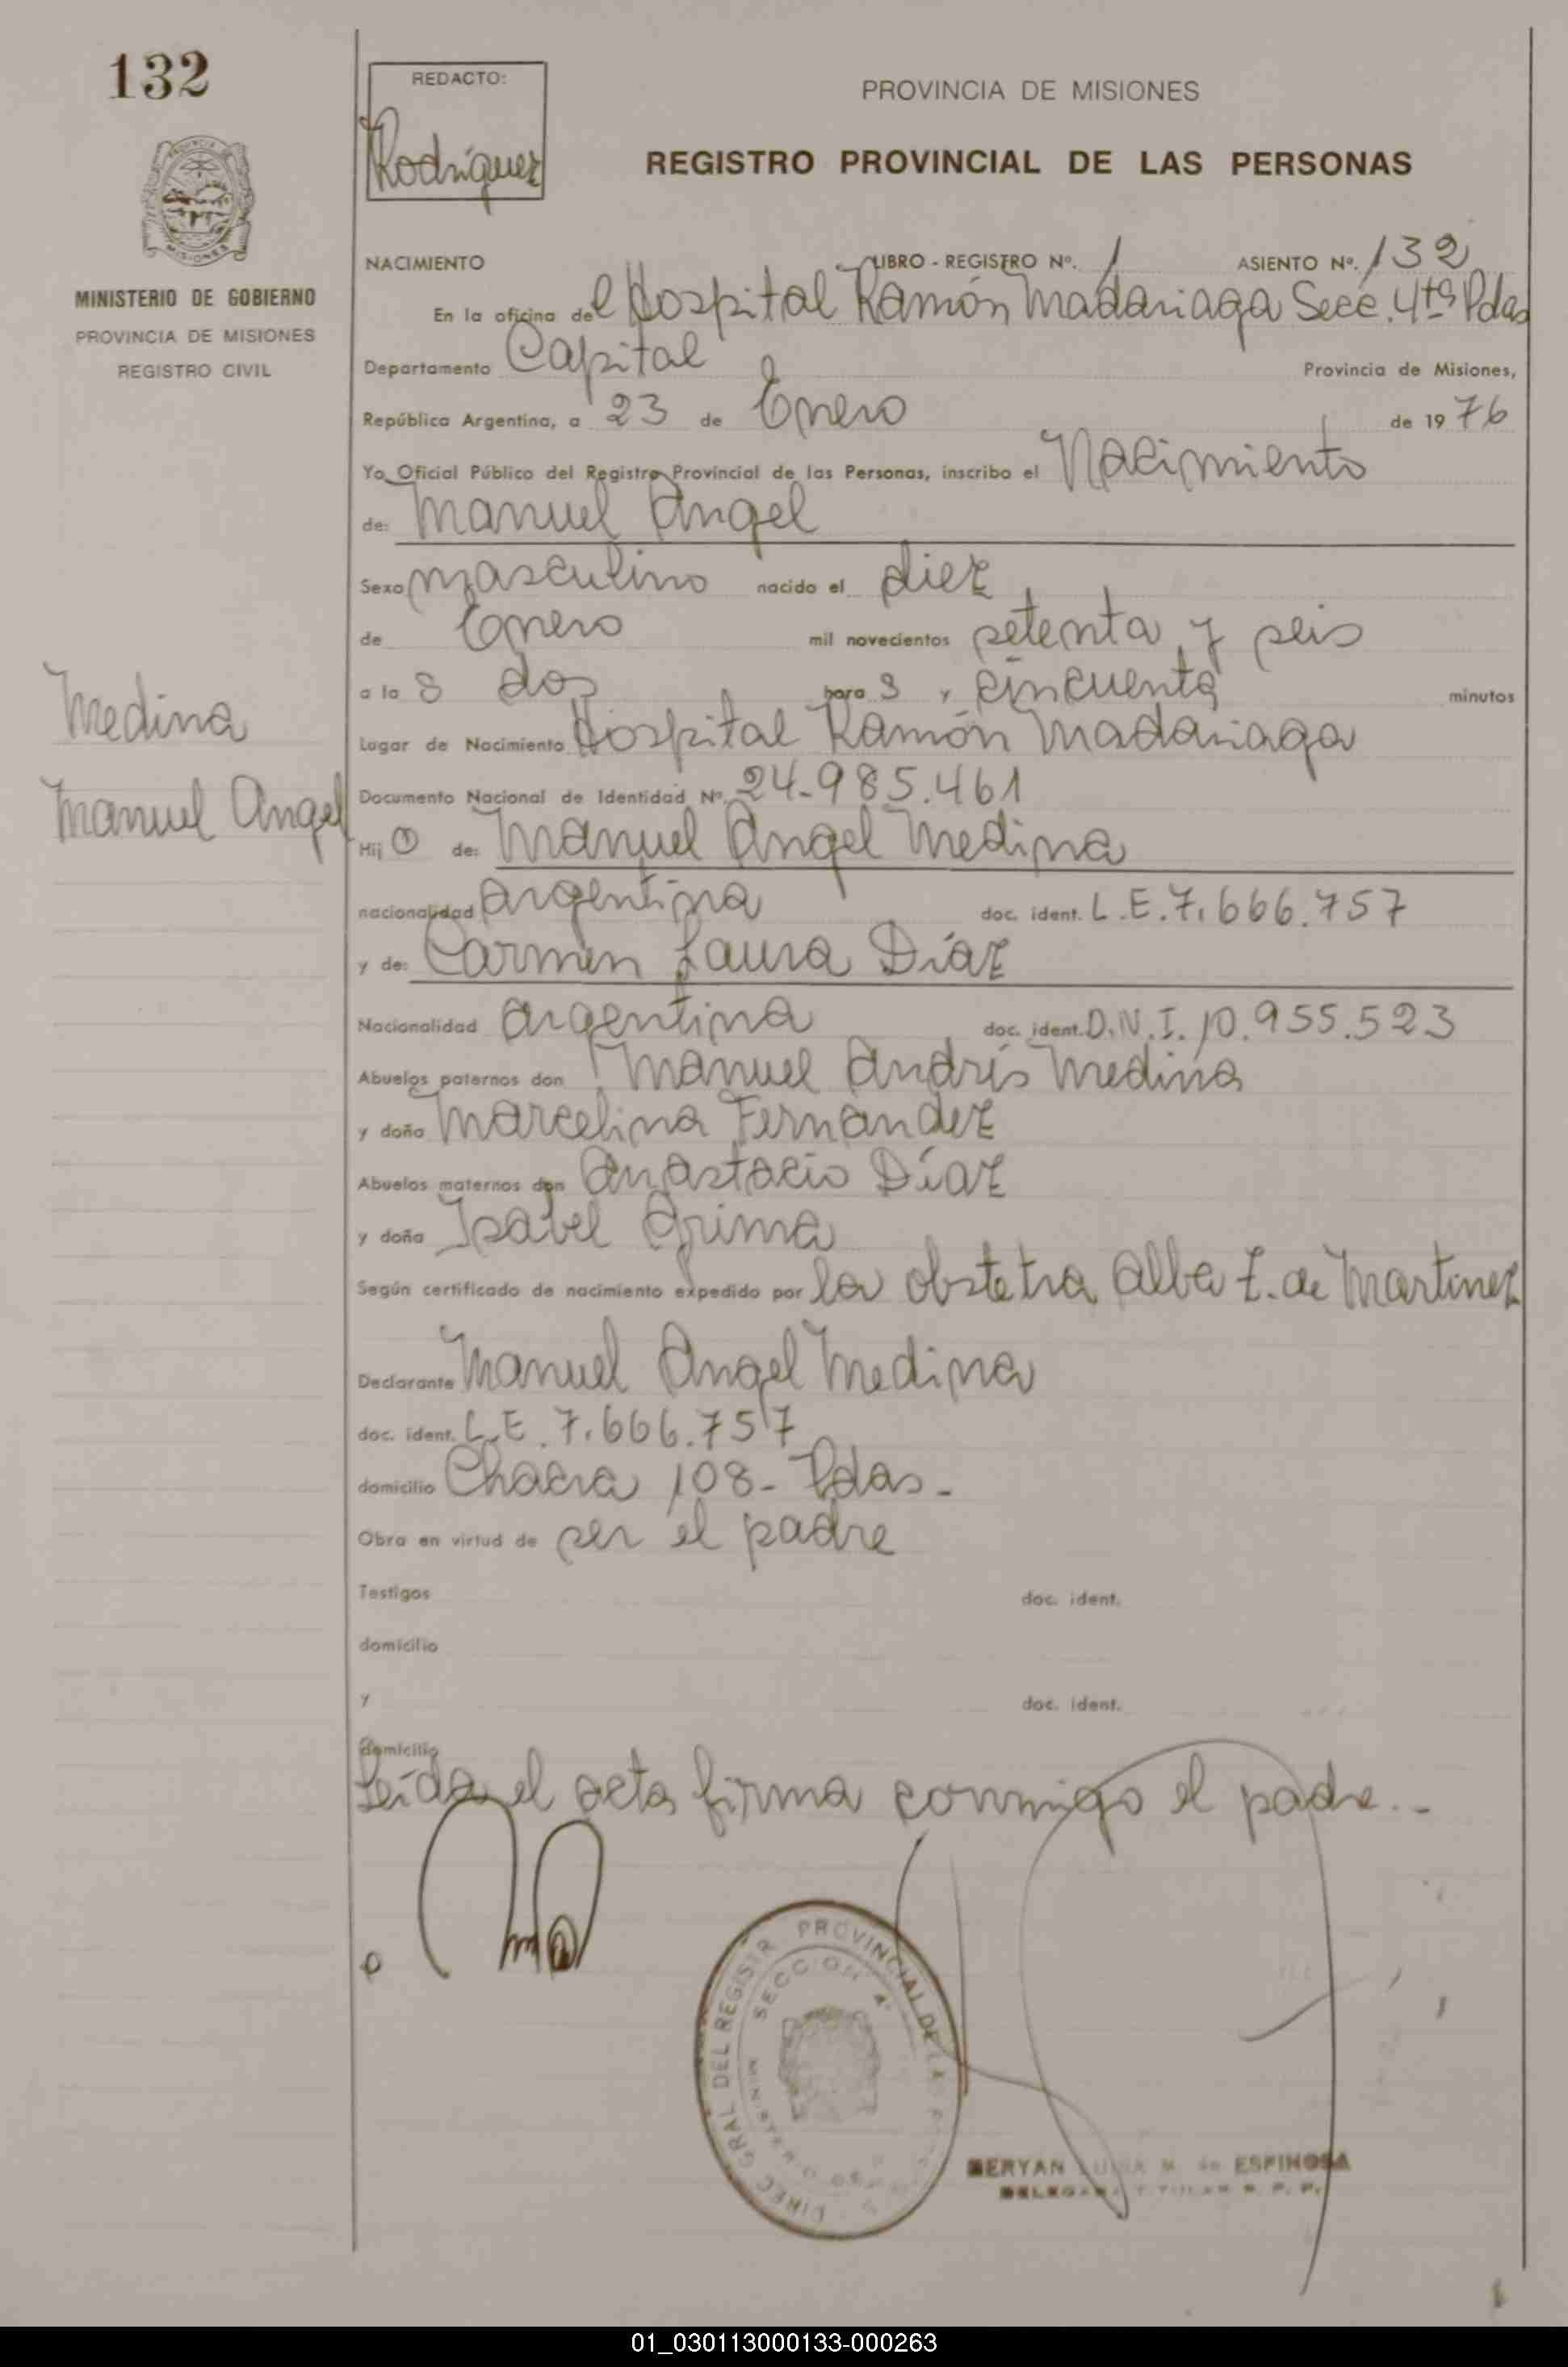 132
REDACTO:
Rodríguez
PROVINCIA DE MISIONES
REGISTRO PROVINCIAL DE LAS PERSONAS
MISIONES
MINISTERIO DE GOBIERNO
PROVINCIA DE MISIONES
REGISTRO CIVIL
NACIMIENTO LIBRO - REGISTRO Nº. 1 ASIENTO Nº. 132
En la oficina del Hospital Ramón Madariaga Secc. 4ta Pdas
Departamento Capital Provincia de Misiones,
República Argentina, a 23 de Enero de 1976
Yo, Oficial Público del Registro Provincial de las Personas, inscribo el Nacimiento
de: Manuel Angel
Sexo masculino nacido el diez
de Enero mil novecientos setenta y seis
a las dos horas y cincuenta minutos
Lugar de Nacimiento Hospital Ramón Madariaga
Documento Nacional de Identidad Nº. 24.985.461
Medina
Manuel Angel
Hijo de: Manuel Angel Medina
nacionalidad argentina doc. ident. L.E.7.666.757
y de: Carmen Laura Díaz
Nacionalidad argentina doc. ident. D.N.I. 10.955.523
Abuelos paternos don Manuel Andrés Medina
y doña Marcelina Fernández
Abuelos maternos don Anastacio Díaz
y doña Isabel Grima
Según certificado de nacimiento expedido por la obstetra Alba Z. de Martinez
Declarante Manuel Angel Medina
doc. ident. L.E. 7.666.757
domicilio Chacra 108- Pdas-
Obra en virtud de ser el padre
Testigos doc. ident.
domicilio
y doc. ident.
domicilio
Leída el acta firma conmigo el padre.-
DIREC GRAL DEL REGISTR PROVINCIAL DE LA
SECCION 4ª
MINISTERIO DE
ESPINOSA
01_030113000133-000263